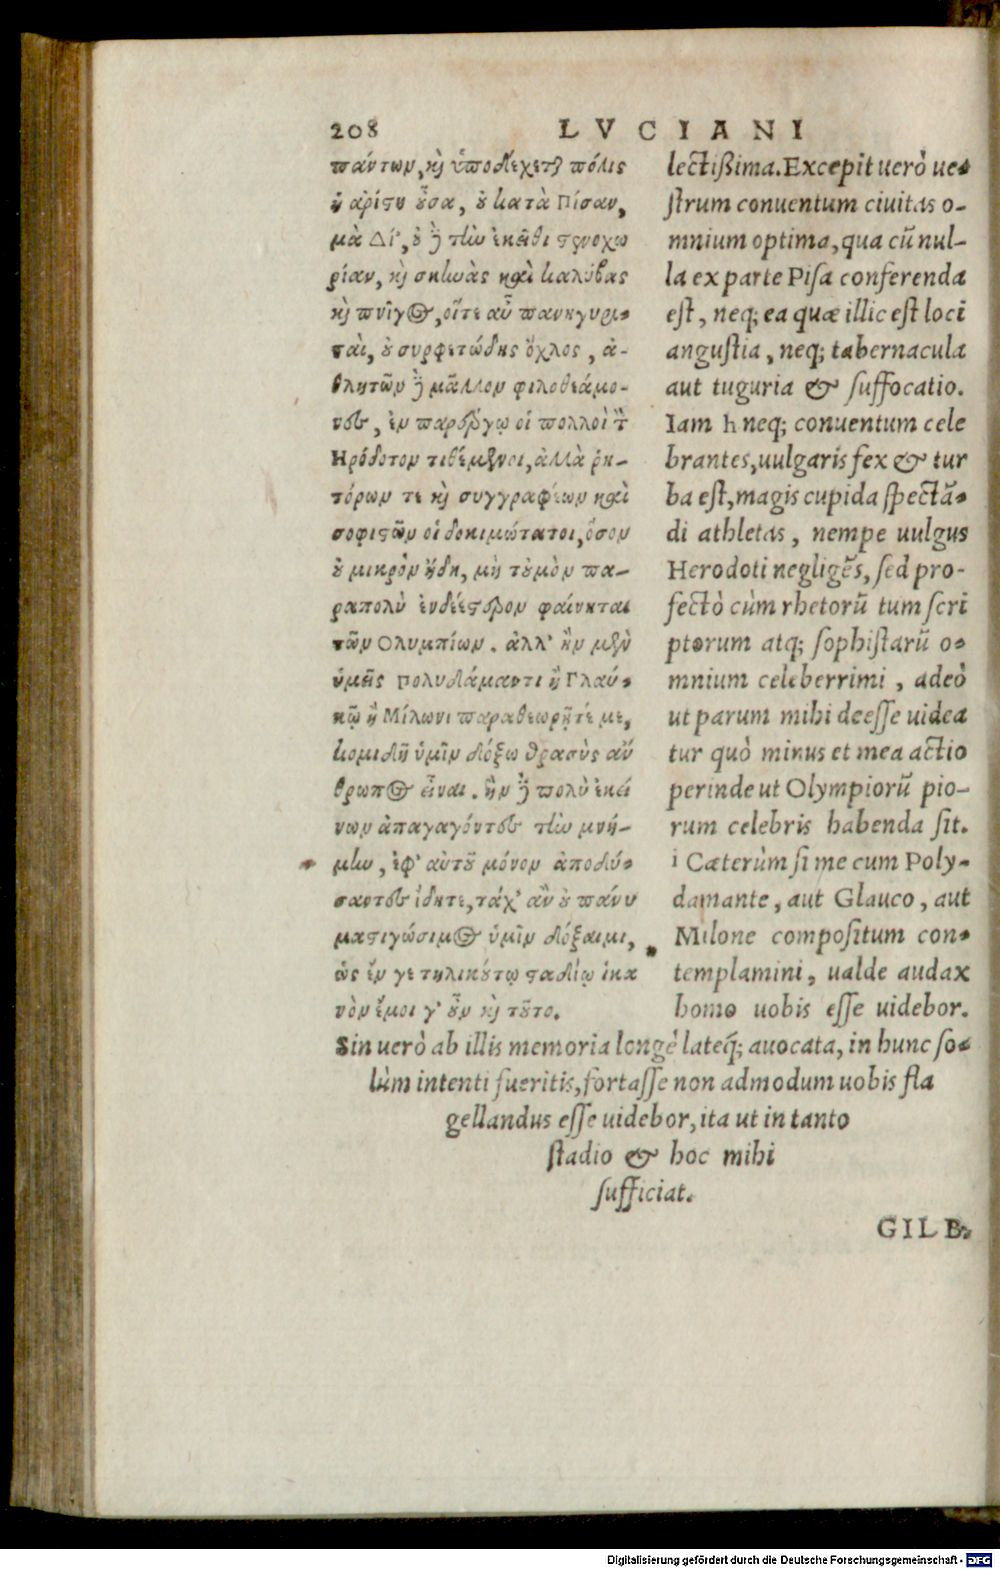 208 LVCIANI
πάντων, κὶ ὑποδέχεται πόλις
ἡ ἀρίστη οὖσα, οὐ κατὰ Πίσαν,
μὰ Δί', οὐ δὲ τὴν ἐκεῖθι στενοχω
ρίαν, κὶ σκηνὰς καὶ καλύβας
κὶ πνῖγος, οἵτε αὖ πανηγυρι-
ταὶ, οὐ συρφετώδης ὄχλος, ἀ-
θλητῶν δὲ μᾶλλον φιλοθεάμο-
νες, ἐν παρέργῳ οἱ πολλοὶ τὸν
Ηρόδοτον τιθέμενοι, ἀλλὰ ῥη-
τόρων τε κὶ συγγραφέων καὶ
σοφιστῶν οἱ δοκιμώτατοι, ὅσον
οὐ μικρὸν ἤδη, μὴ τοὐμὸν πα-
ραπολὺ ἐνδεέστερον φαίνηται
τῶν Ολυμπίων. ἀλλ' ἢν μὲν
ὑμεῖς Πολυδάμαντι ἢ Γλαύ-
κῳ ἢ Μίλωνι παραθεωρῆτέ με,
κομιδῆ ὑμῖν δόξω θρασὺς ἄν
θρωπος εἶναι. ἢν δὲ πολὺ ἐκεί
νων ἀπαγαγόντες τὴν μνή-
μην, ἐφ' αὑτοῦ μόνον ἀποδύ-
σαντες ἴδητε, τάχ' ἂν οὐ πάνυ
μαστιγώσιμος ὑμῖν δόξαιμι,
ὡς ἔν γε τηλικούτῳ σταδίῳ ἱκα
νὸν ἔμοι γ' οὖν κὶ τοῦτο.
lectißima. Excepit uerò ue-
strum conuentum ciuitas o-
mnium optima, qua cũ nul-
la ex parte Pisa conferenda
est, neq; ea quæ illic est loci
angustia, neq; tabernacula
aut tuguria & suffocatio.
Iam h neq; conuentum cele
brantes, uulgaris fex & tur
ba est, magis cupida spectã-
di athletas, nempe uulgus
Herodoti negligẽs, sed pro-
fectò cùm rhetorũ tum scri
ptorum atq; sophistarũ o-
mnium celeberrimi, adeò
ut parum mihi deesse uidea
tur quò minus et mea actio
perinde ut Olympiorũ pio-
rum celebris habenda sit.
i Cæterùm si me cum Poly-
damante, aut Glauco, aut
Milone compositum con-
templamini, ualde audax
homo uobis esse uidebor.
Sin uerò ab illis memoria longè lateq́; auocata, in hunc so-
lùm intenti fueritis, fortasse non admodum uobis fla
gellandus esse uidebor, ita ut in tanto
stadio & hoc mihi
sufficiat.
GILB.
Digitalisierung gefördert durch die Deutsche Forschungsgemeinschaft - DFG